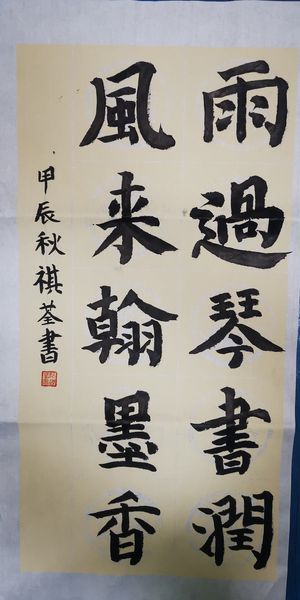 雨過琴書潤
風来翰墨香
甲辰秋祺荃書